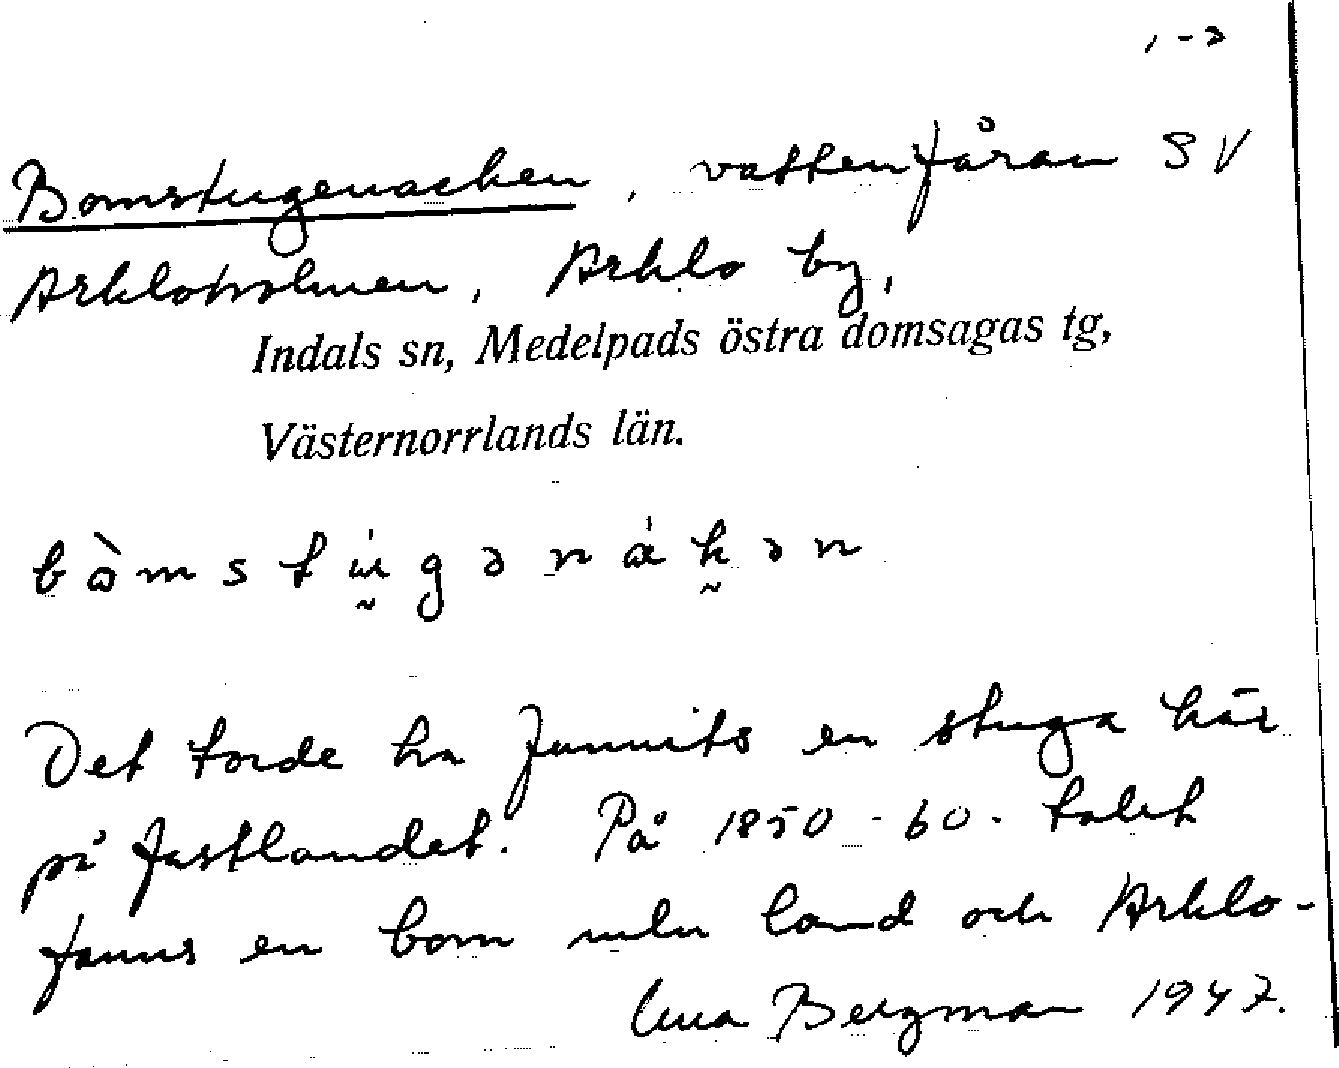 , - ɔ
Bomstugenacken, vattenfåran SV
Arkloholmen, Arklo by,
Indals sn, Medelpads östra domsagas tg,
Västernorrlands län.
bòmstúgənákən
Det torde ha funnits en stuga här
på fastlandet. På 1850-60-talet
fanns en bom mln land och Arklo-
Bergman 1947.